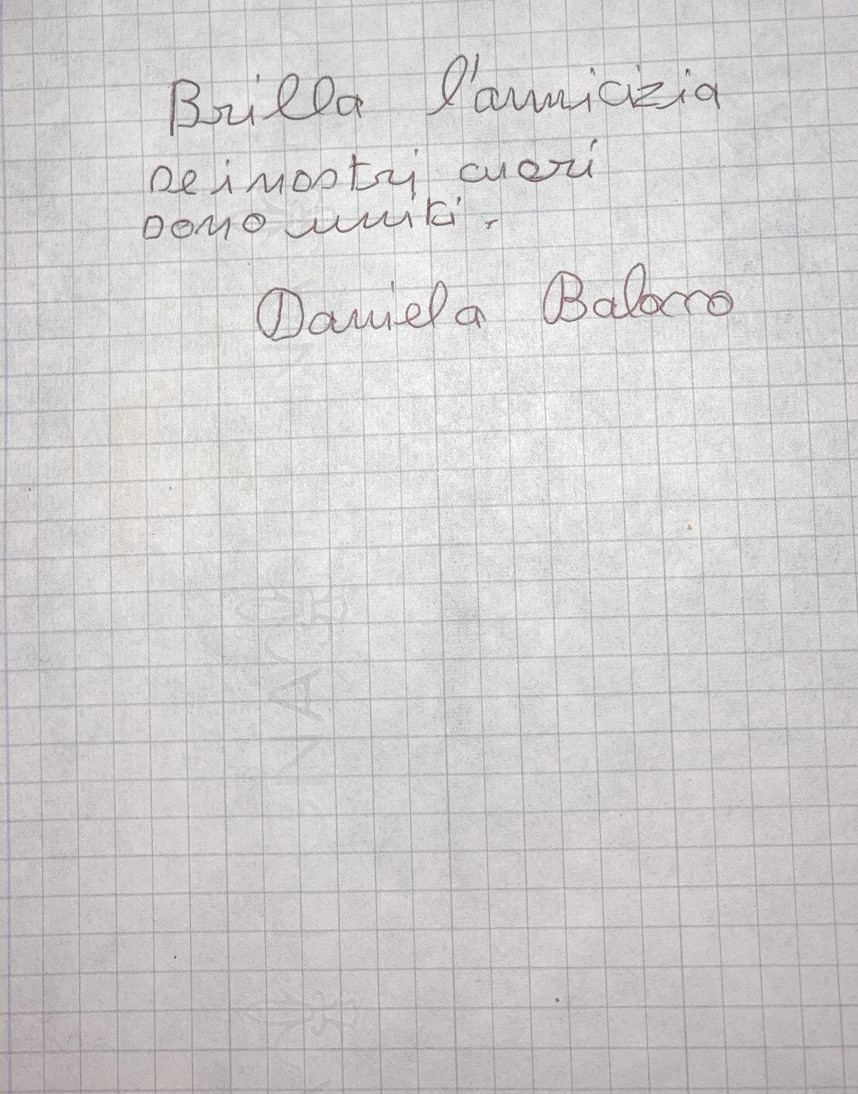 Brilla l'amicizia
se i nostri cuori
sono uniti.
Daniela Balocco